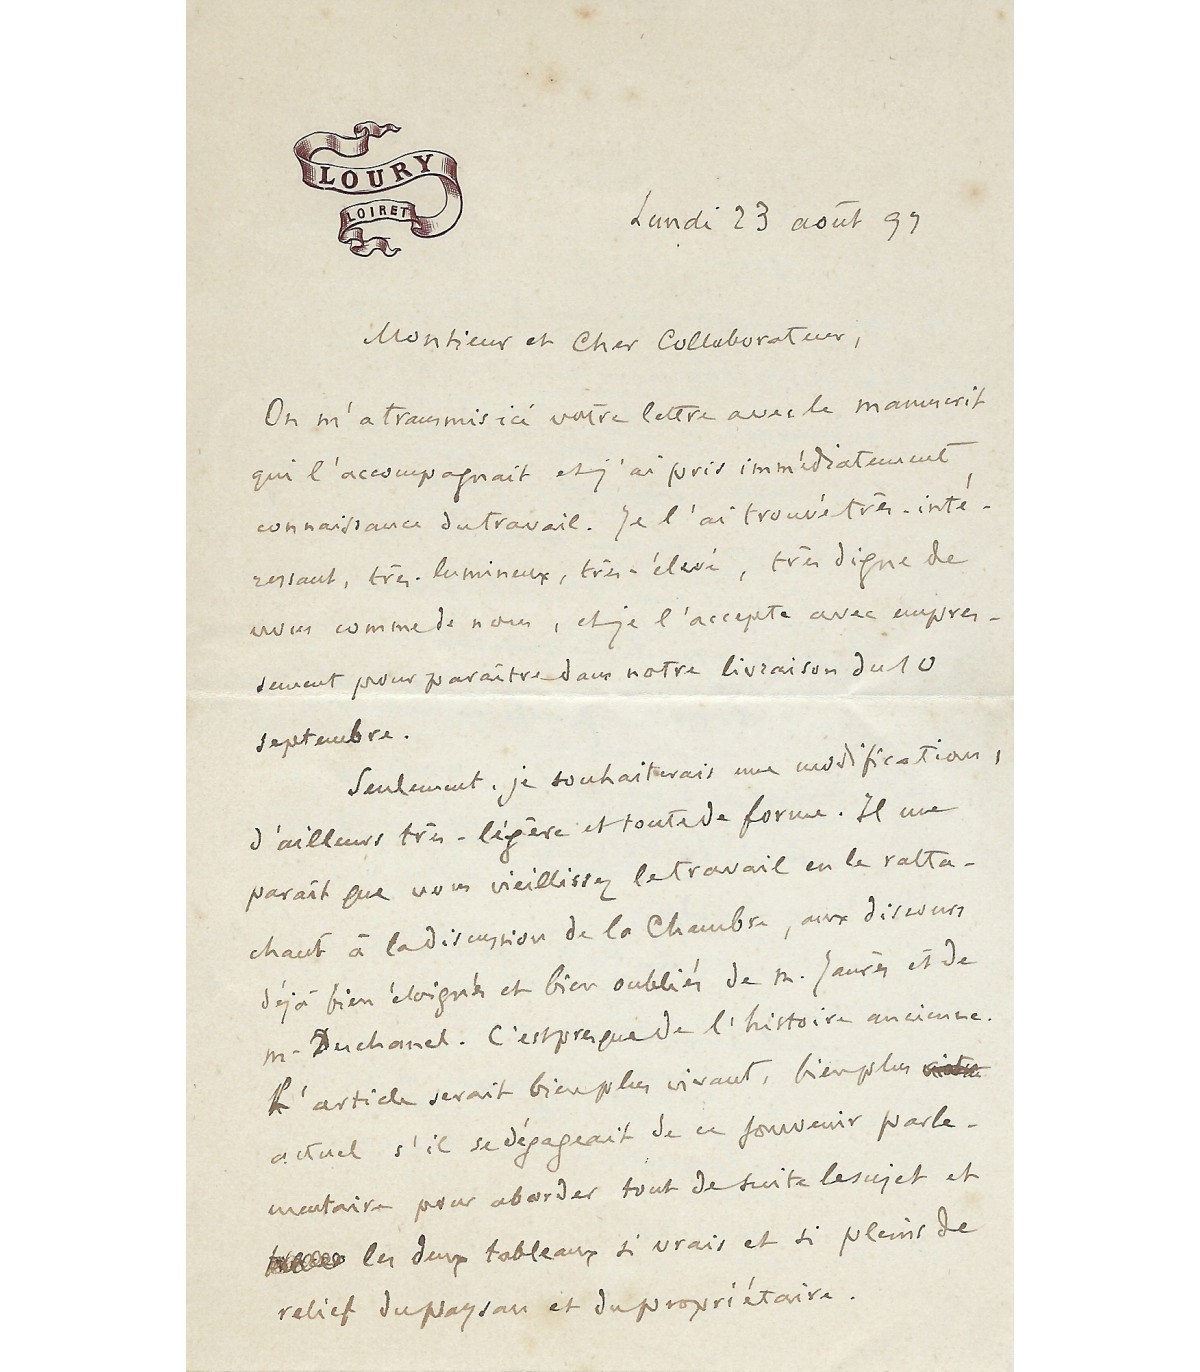 LOURY
LOIRET
Lundi 23 août 97
Monsieur et Cher Collaborateur,
On m'a transmis ici votre lettre avec le manuscrit
qui l'accompagnait et j'ai pris immédiatement
connaissance du travail. Je l'ai trouvé très-inté-
ressant, très-lumineux, très-élevé, très digne de
vous comme de nous, et je l'accepte avec empres-
sement pour paraître dans notre livraison du 10
septembre.
Seulement, je souhaiterais une modification,
d'ailleurs très-légère et toute de forme. Il me
paraît que vous vieillissez le travail en le ratta-
chant à la discussion de la Chambre, aux discours
déjà bien éloignés et bien oubliés de M. Jaurès et de
M. Deschanel. C'est presque de l'histoire ancienne.
L'article serait bien plus vivant, bien plus
actuel s'il se dégageait de ce souvenir parle-
mentaire pour aborder tout de suite le sujet et
les deux tableaux si vrais et si pleins de
relief du paysan et du propriétaire.